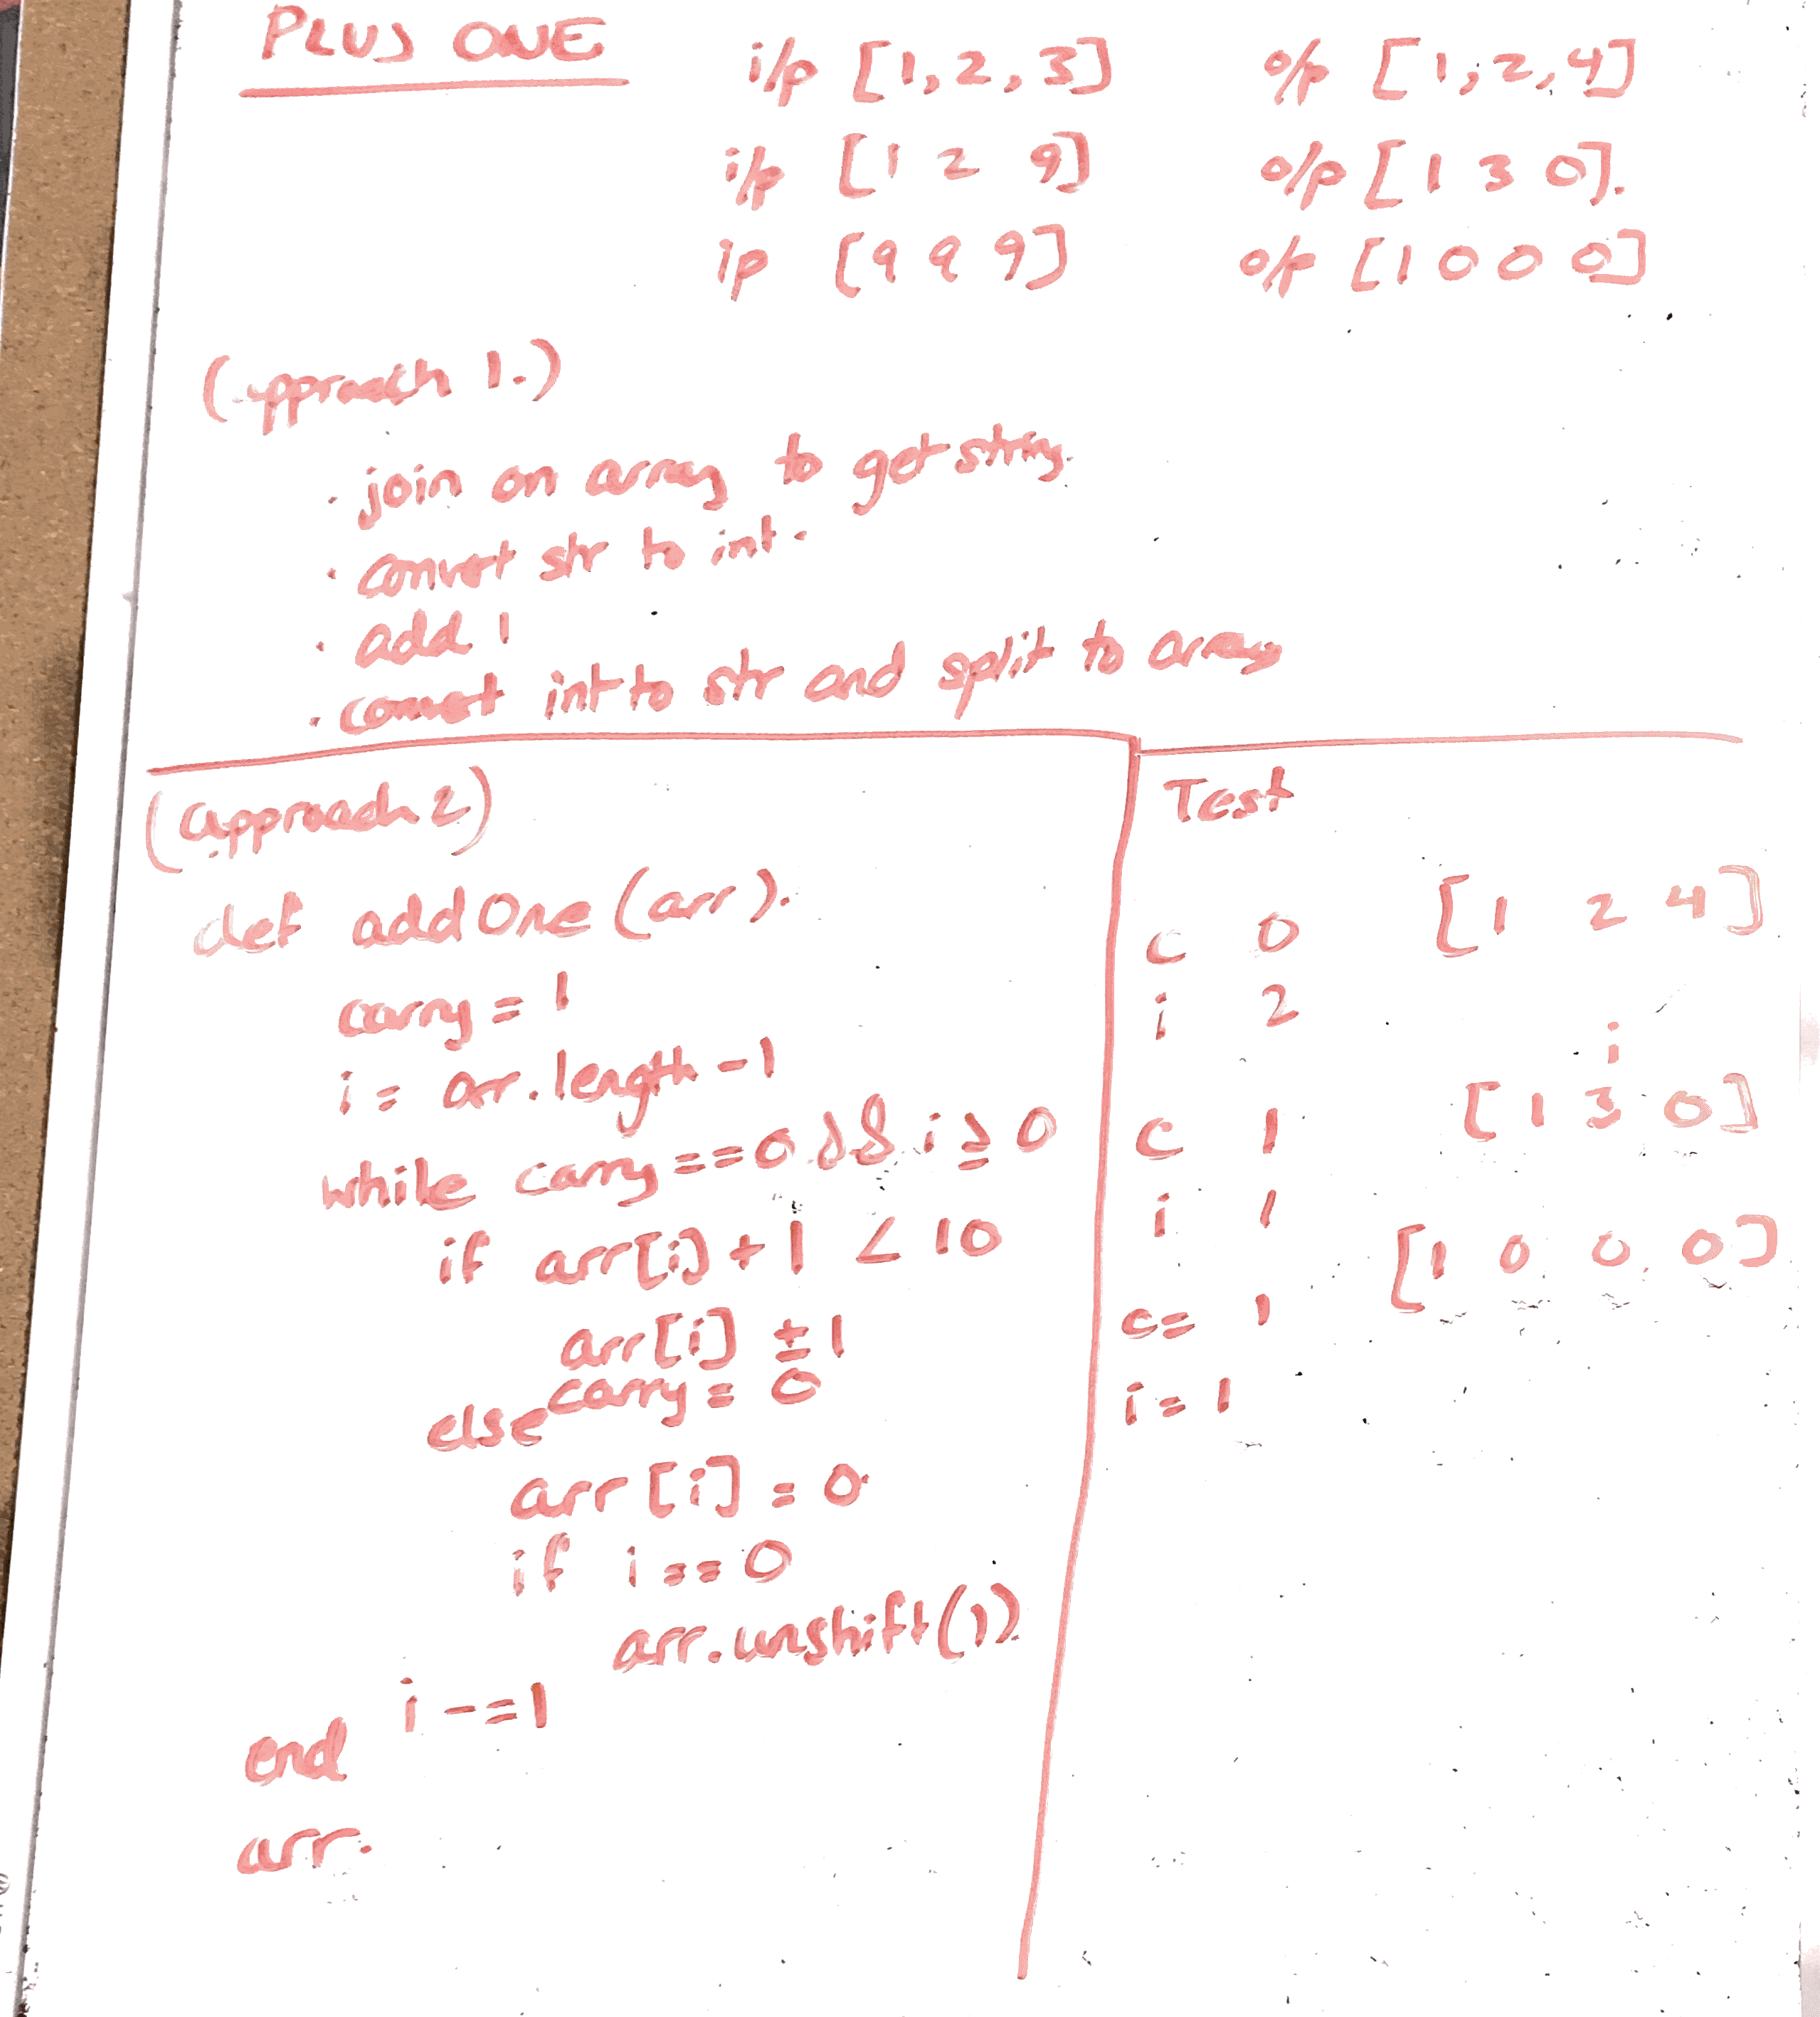 PLUS ONE
i/p [1,2,3] o/p [1,2,4]
i/p [1 2 9] o/p [1 3 0].
ip [9 9 9] o/p [1 0 0 0]
(approach 1.)
· join on array to get string.
· convert str to int.
· add 1
· convert int to str and split to array
(approach 2)
def addOne (arr).
carry = 1
i = arr.length -1
while carry == 0 && i ≥ 0
if arr[i] + 1 < 10
arr[i] += 1
carry = 0
else
arr[i] = 0
if i == 0
arr.unshift(1)
i -= 1
end
arr.
Test
c 0 [1 2 4]
i 2
i
c 1 [1 3 0]
i 1
[1 0 0 0]
c= 1
i= 1